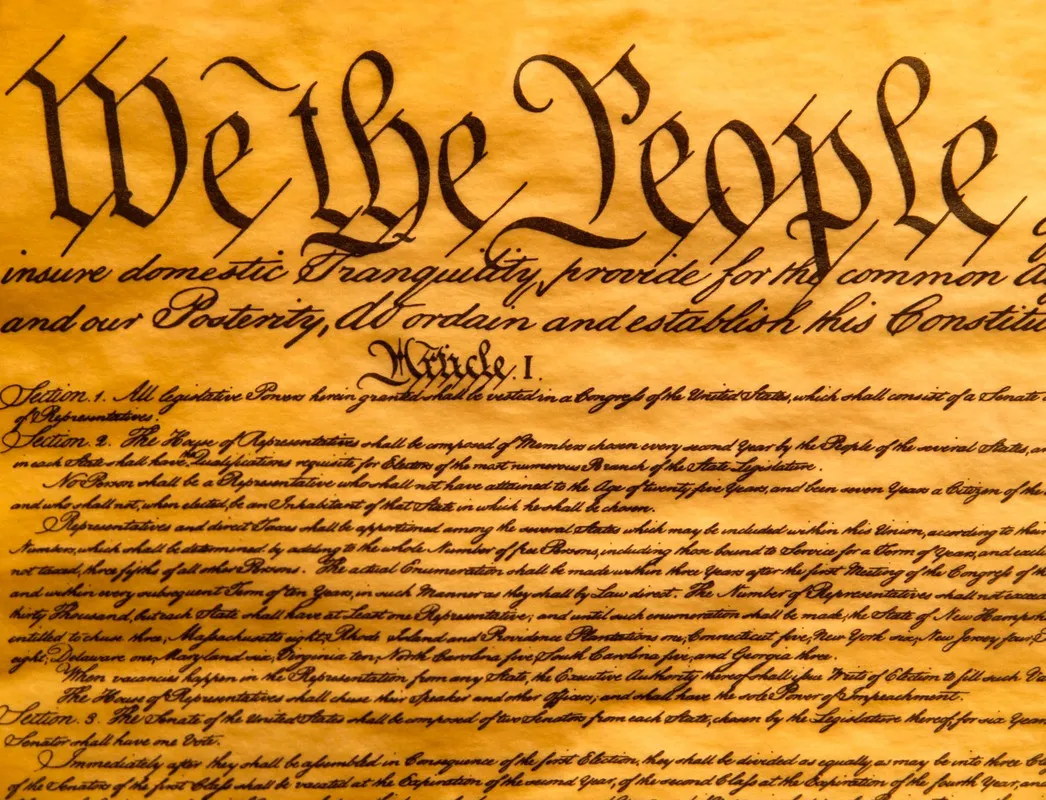 We the People
insure domestic Tranquility, provide for the common
and our Posterity, do ordain and establish this
Article. I.
Section. 1. All legislative Powers herein granted shall be vested in a Congress of the United States, which shall consist of a Senate
of Representatives.
Section. 2. The House of Representatives shall be composed of Members chosen every second Year by the People of the several States,
in each State shall have the Qualifications requisite for Electors of the most numerous Branch of the State Legislature.
No Person shall be a Representative who shall not have attained to the Age of twenty five Years, and been seven Years a Citizen of the
and who shall not, when elected, be an Inhabitant of that State in which he shall be chosen.
Representatives and direct Taxes shall be apportioned among the several States which may be included within this Union, according to
Numbers, which shall be determined by adding to the whole Number of free Persons, including those bound to Service for a Term of Years, and
not taxed, three fifths of all other Persons. The actual Enumeration shall be made within three Years after the first Meeting of the Congress of
and within every subsequent Term of ten Years, in such Manner as they shall by Law direct. The Number of Representatives shall not
thirty Thousand, but each State shall have at Least one Representative; and until such enumeration shall be made, the State of New
entitled to chuse three, Massachusetts eight, Rhode Island and Providence Plantations one, Connecticut five, New York six, New Jersey four,
eight, Delaware one, Maryland six, Virginia ten, North Carolina five, South Carolina five, and Georgia three.
When vacancies happen in the Representation from any State, the Executive Authority thereof shall issue Writs of Election to fill such
The House of Representatives shall chuse their Speaker and other Officers; and shall have the sole Power of Impeachment.
Section. 3. The Senate of the United States shall be composed of two Senators from each State, chosen by the Legislature thereof, for six
Senator shall have one Vote.
Immediately after they shall be assembled in Consequence of the first Election, they shall be divided as equally as may be into three
of the Senators of the first Class shall be vacated at the Expiration of the second Year, of the second Class at the Expiration of the fourth Year, and